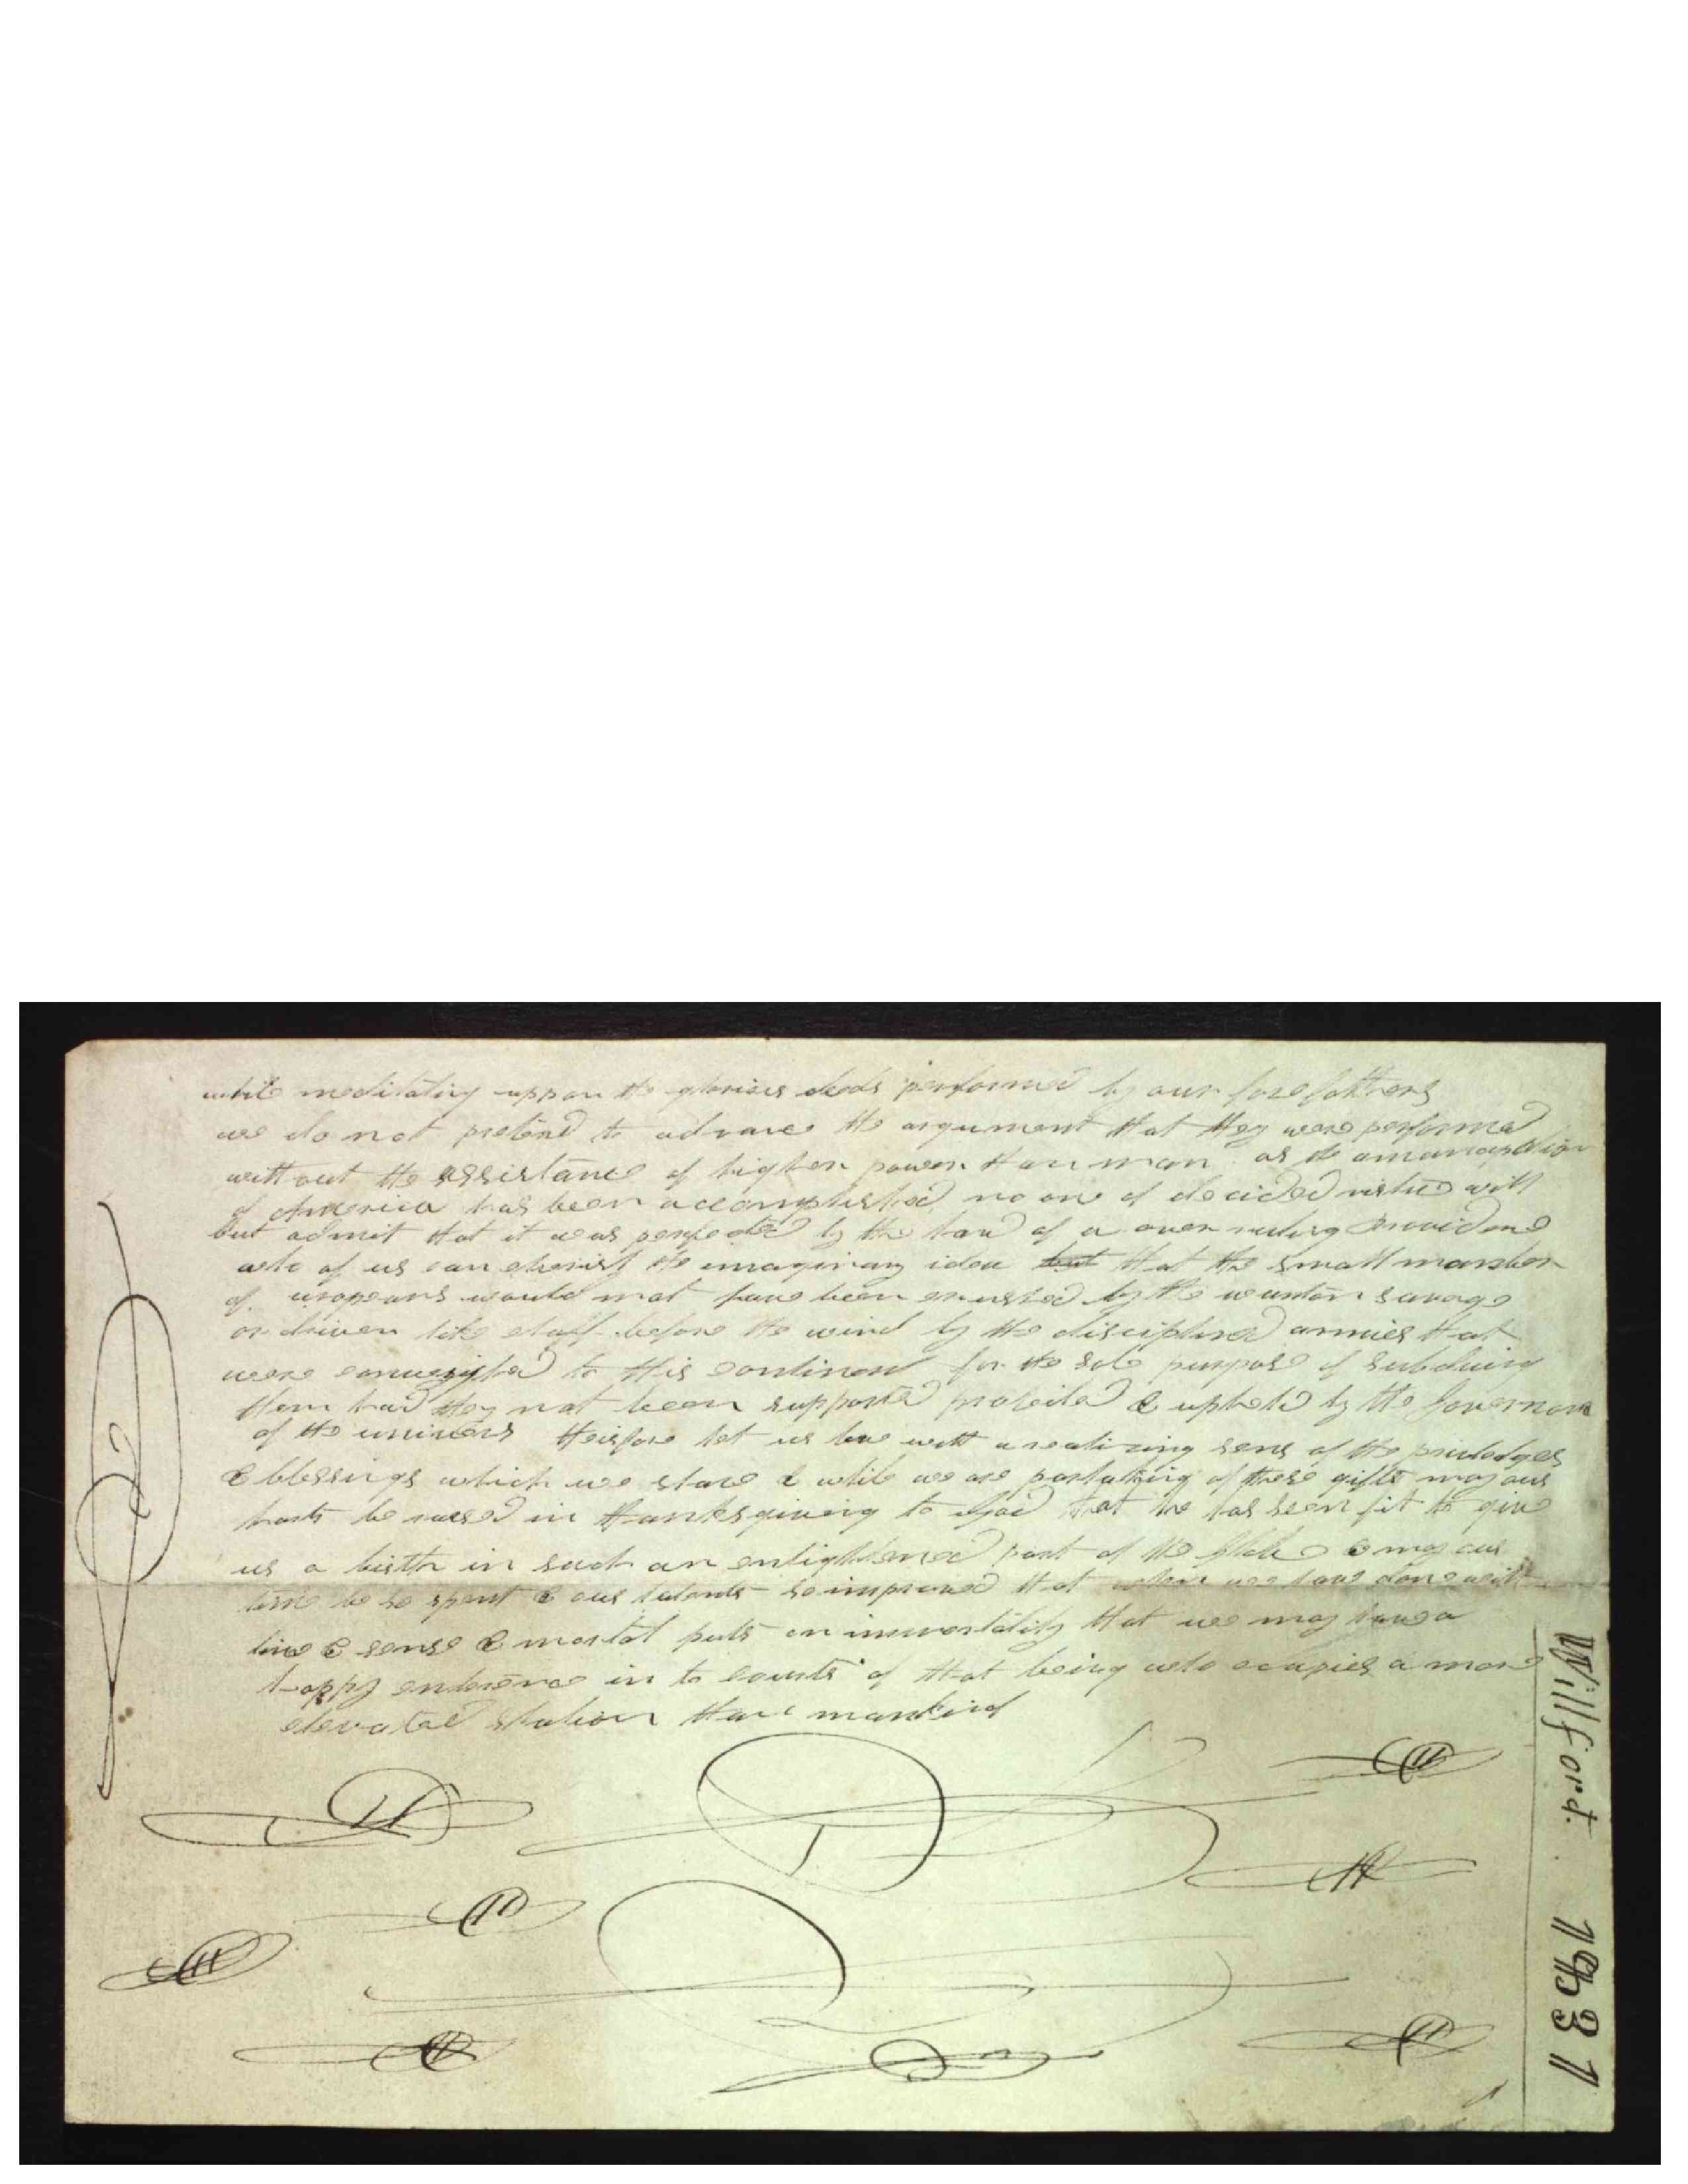 while meditating uppon the glorious deeds performed by our forefathers
we do not pretend to advance the argument that they were performed
without the assistance of higher power than man as the amancapation
of America has been accomplished no one of decided virtue will
but admit that it was perfected by the hand of a over ruling Providence
who of us can cherish the imaginary idea that the small number
of uropeans would not have been crushed by the wanton savage
or driven like chaff before the wind by the disciplined armies that
were to this continent for the sole purpose of subduing
them had they not been supported protected & upheld by the Governor
of the univers therefore let us live with a realizing sens of the priveledges
& blessings which we share & while we are partaking of these gifts may our
harts be raised in thanksgiving to God that he has seen fit to give
us a birth in such an enlightened part of the Globe & may our
time be so spent & our talents so improved that when we have done with
time & sense & mortal puts on immortality that we may have a
happy entrence in to courts of that being who ocupies a more
elevated station than mankind
Willford. 1831